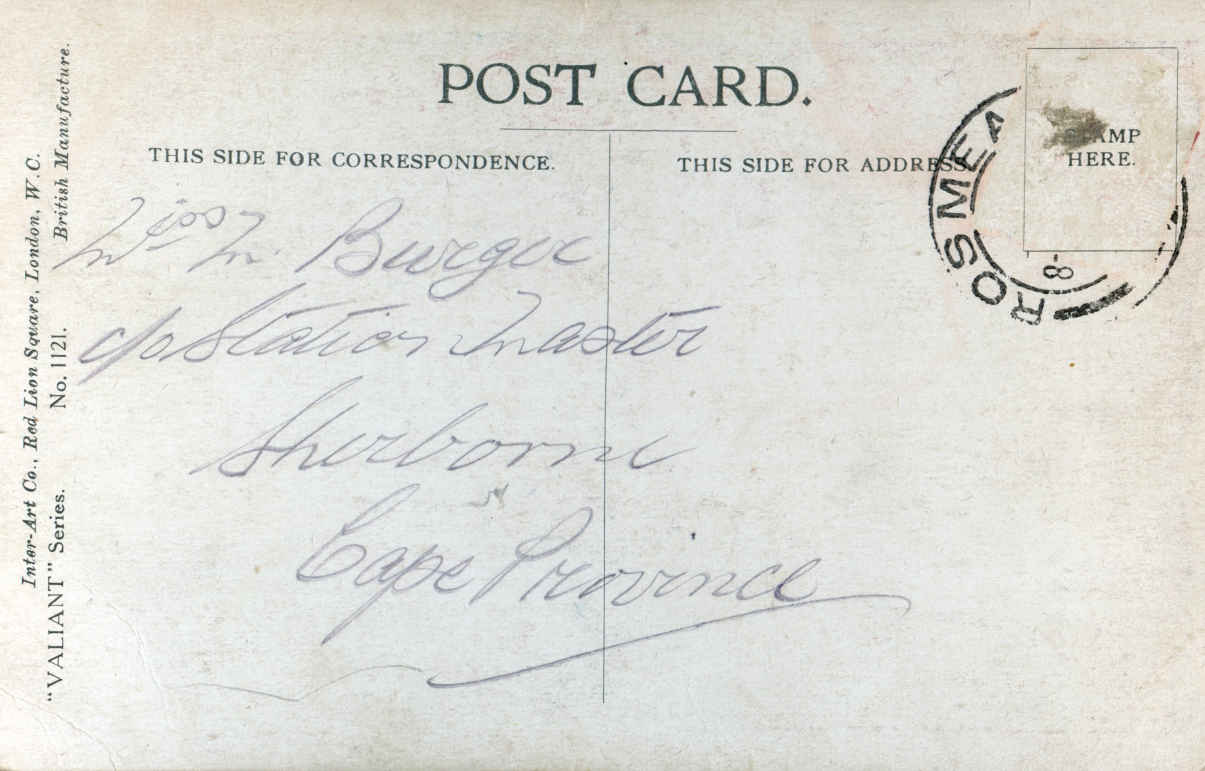 POST CARD.
THIS SIDE FOR CORRESPONDENCE.
THIS SIDE FOR ADDRESS.
STAMP
HERE.
ROSMEA
-8
Miss M. Burger
c/o Station Master
Sherborne
Cape Province
Inter-Art Co., Red Lion Square, London, W.C.
British Manufacture.
"VALIANT" Series.
No. 1121.